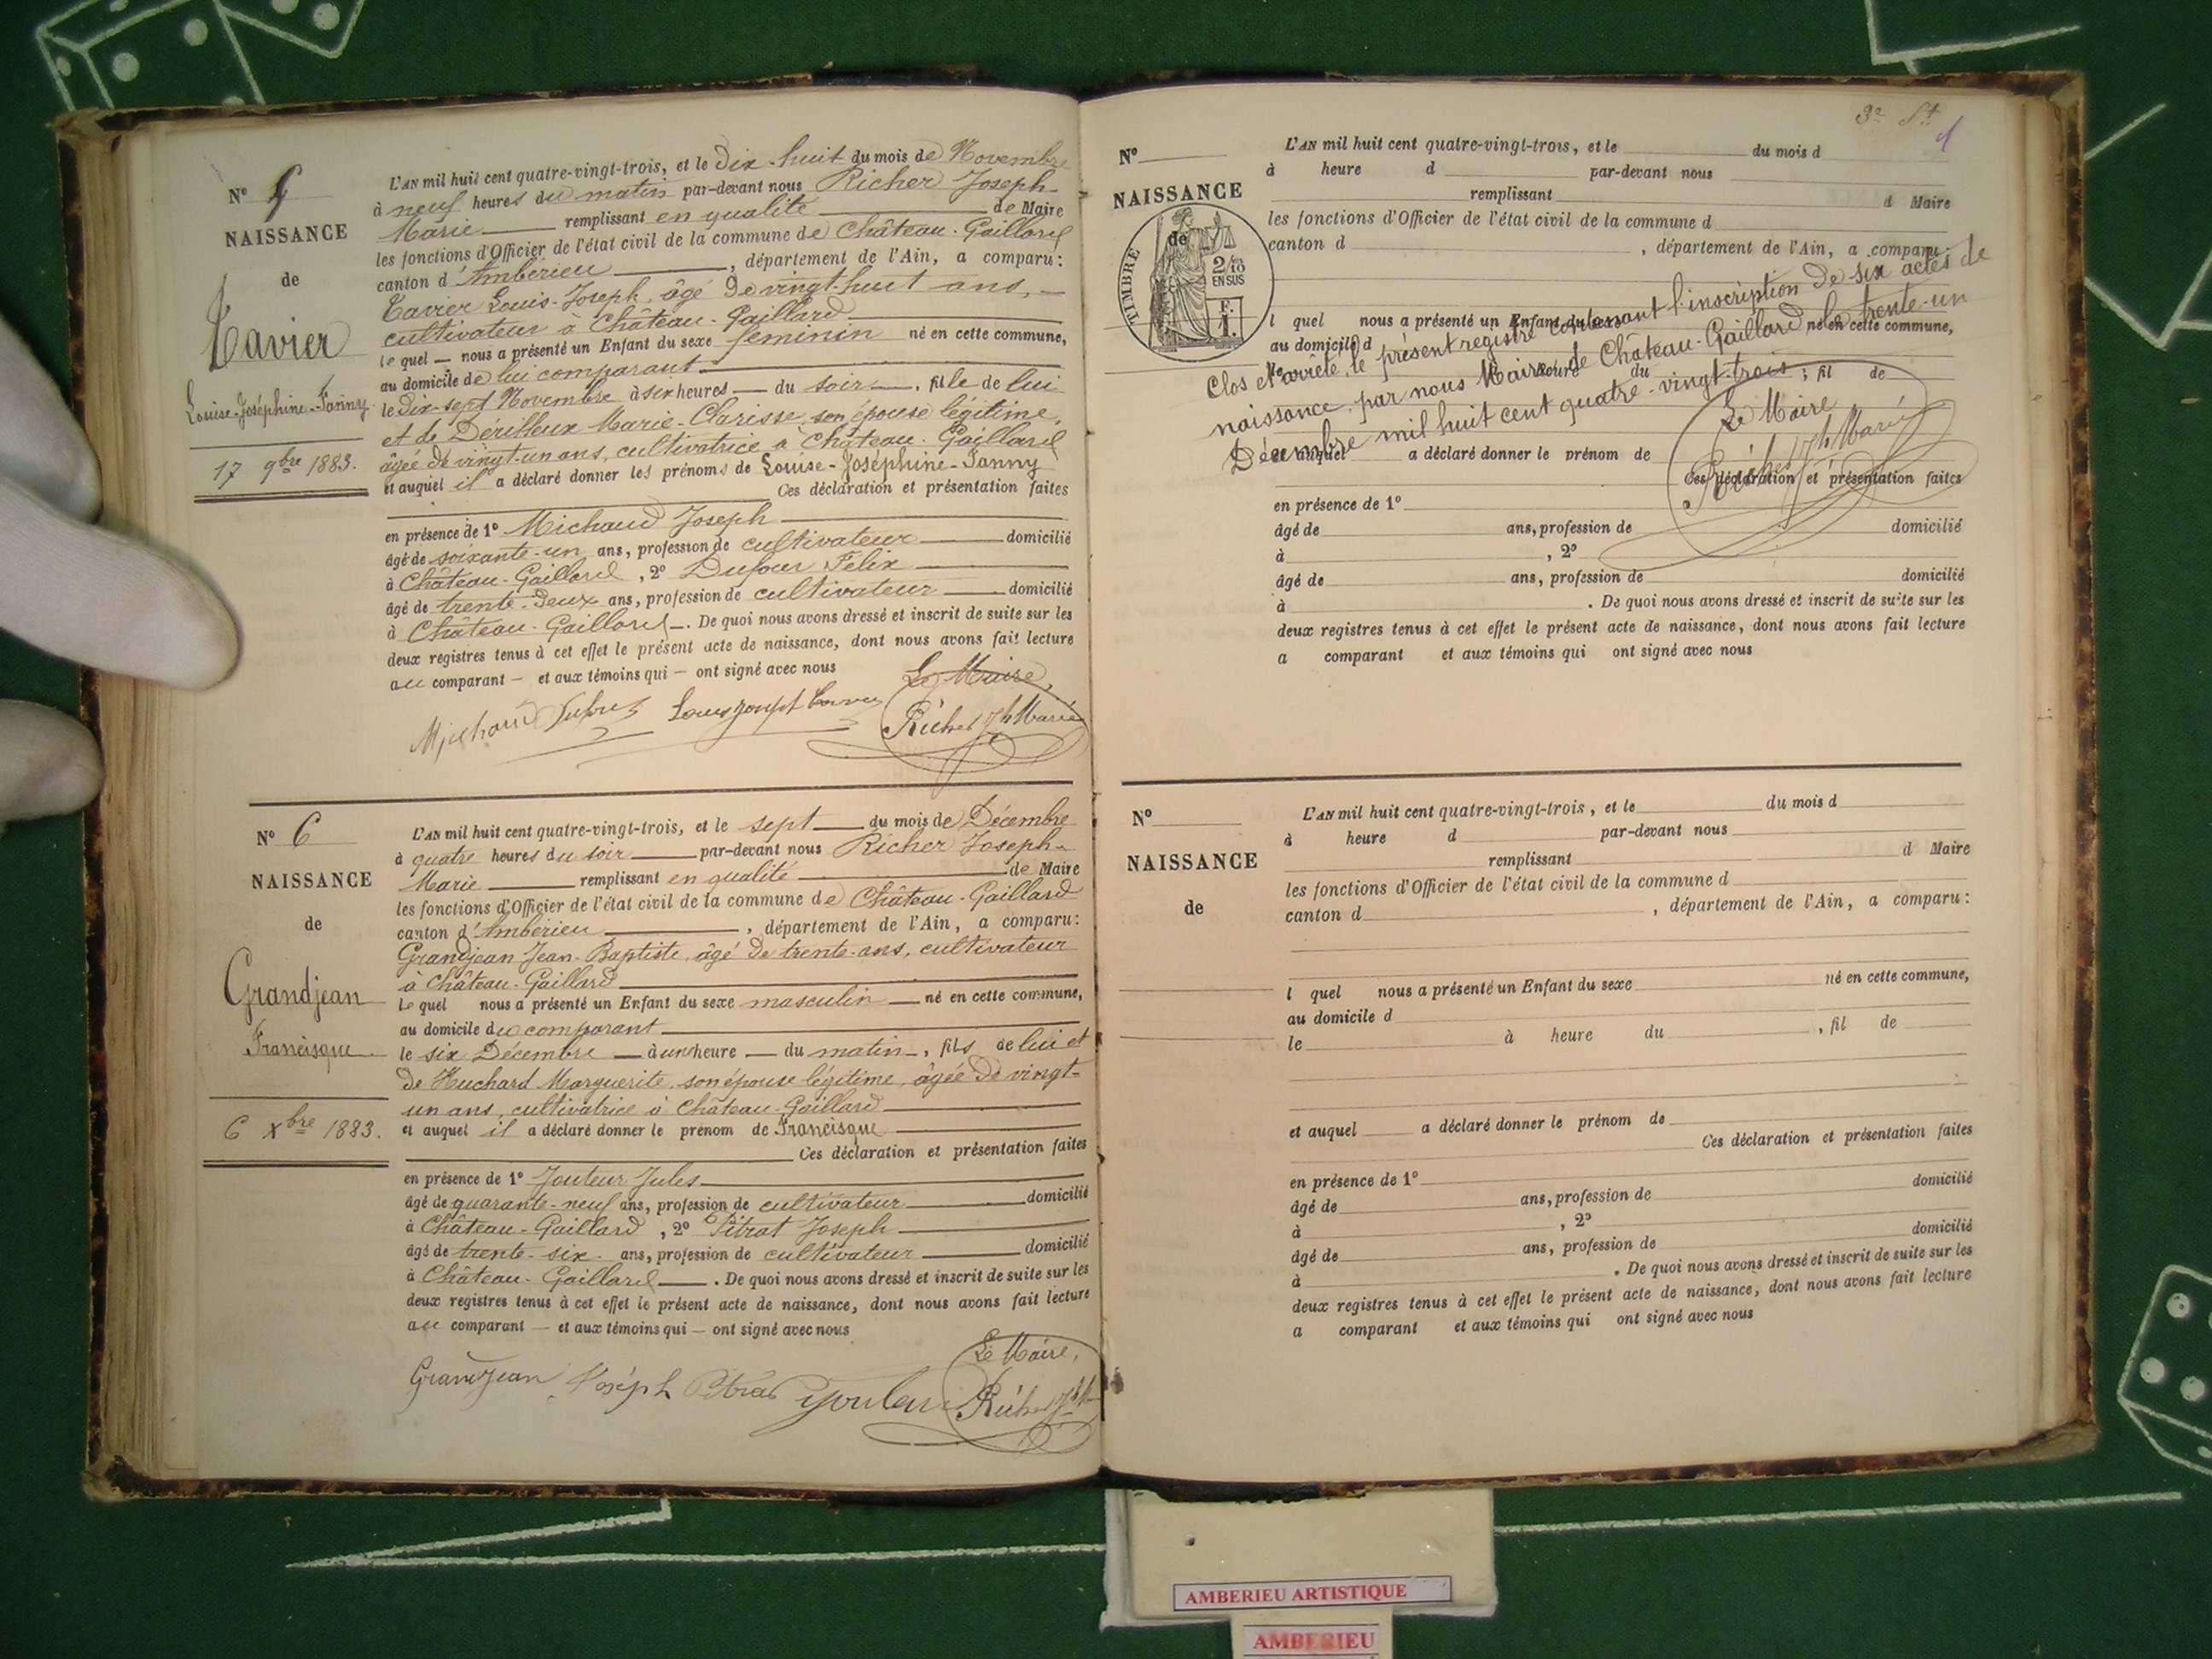 N° 5
NAISSANCE
de
Tavier
Louise-Joséphine-Fanny
17 9bre 1883.
L'AN mil huit cent quatre-vingt-trois, et le Dix-huit du mois de Novembre
à neuf heures du matin par-devant nous Richer Joseph-
Marie remplissant en qualité de Maire
les fonctions d'Officier de l'état civil de la commune de Château-Gaillard
canton d'Ambérieu, département de l'Ain, a comparu:
Tavier Louis-Joseph, âgé de vingt-huit ans,
cultivateur à Château-Gaillard
lequel nous a présenté un Enfant du sexe féminin né en cette commune,
au domicile de lui comparant
le Dix-sept Novembre à six heures du soir, fille de lui
et de Dérilleux Marie-Clarisse, son épouse légitime,
âgée de vingt-un ans, cultivatrice à Château-Gaillard
et auquel il a déclaré donner les prénoms de Louise-Joséphine-Fanny
Ces déclaration et présentation faites
en présence de 1° Michaud Joseph
âgé de soixante-un ans, profession de cultivateur domicilié
à Château-Gaillard, 2° Dufour Félix
âgé de trente-deux ans, profession de cultivateur domicilié
à Château-Gaillard. De quoi nous avons dressé et inscrit de suite sur les
deux registres tenus à cet effet le présent acte de naissance, dont nous avons fait lecture
au comparant et aux témoins qui ont signé avec nous
Le Maire,
Michaud Louis Joseph Richer Jh Marie
N° 6
NAISSANCE
de
Grandjean
Francisque
6 Xbre 1883.
L'AN mil huit cent quatre-vingt-trois, et le sept du mois de Décembre
à quatre heures du soir par-devant nous Richer Joseph-
Marie remplissant en qualité de Maire
les fonctions d'Officier de l'état civil de la commune de Château-Gaillard
canton d'Ambérieu, département de l'Ain, a comparu:
Grandjean Jean-Baptiste, âgé de trente-ans, cultivateur
à Château-Gaillard
Lequel nous a présenté un Enfant du sexe masculin né en cette commune,
au domicile du comparant
le six Décembre à une heure du matin, fils de lui et
de Huchard Marguerite, son épouse légitime, âgée de vingt-
un ans, cultivatrice à Château-Gaillard
et auquel il a déclaré donner le prénom de Francisque
Ces déclaration et présentation faites
en présence de 1° Jouteur Jules
âgé de quarante-neuf ans, profession de cultivateur domicilié
à Château-Gaillard, 2° Pitrat Joseph
âgé de trente-six ans, profession de cultivateur domicilié
à Château-Gaillard. De quoi nous avons dressé et inscrit de suite sur les
deux registres tenus à cet effet le présent acte de naissance, dont nous avons fait lecture
au comparant et aux témoins qui ont signé avec nous
Le Maire,
Grandjean Joseph Pitrat Richer Jh
3e
N°
NAISSANCE
de
TIMBRE
2/10
EN SUS
F.
1.
L'AN mil huit cent quatre-vingt-trois, et le du mois d
à heure d par-devant nous
remplissant d Maire
les fonctions d'Officier de l'état civil de la commune d
canton d , département de l'Ain, a comparu:
l quel nous a présenté un Enfant du sexe né en cette commune,
au domicile d
le à heure du , fil de
Clos et arrêté, le présent registre contenant l'inscription de six actes de
naissance, par nous Maire de Château-Gaillard, le trente-un
Décembre mil huit cent quatre-vingt-trois
Le Maire
Richer Jh Marie
et auquel a déclaré donner le prénom de
Ces déclaration et présentation faites
en présence de 1°
âgé de ans, profession de domicilié
à , 2°
âgé de ans, profession de domicilié
à . De quoi nous avons dressé et inscrit de suite sur les
deux registres tenus à cet effet le présent acte de naissance, dont nous avons fait lecture
a comparant et aux témoins qui ont signé avec nous
N°
NAISSANCE
de
L'AN mil huit cent quatre-vingt-trois, et le du mois d
à heure d par-devant nous
remplissant d Maire
les fonctions d'Officier de l'état civil de la commune d
canton d , département de l'Ain, a comparu:
l quel nous a présenté un Enfant du sexe né en cette commune,
au domicile d
le à heure du , fil de
et auquel a déclaré donner le prénom de
Ces déclaration et présentation faites
en présence de 1°
âgé de ans, profession de domicilié
à , 2°
âgé de ans, profession de domicilié
à . De quoi nous avons dressé et inscrit de suite sur les
deux registres tenus à cet effet le présent acte de naissance, dont nous avons fait lecture
a comparant et aux témoins qui ont signé avec nous
AMBERIEU ARTISTIQUE
AMBERIEU